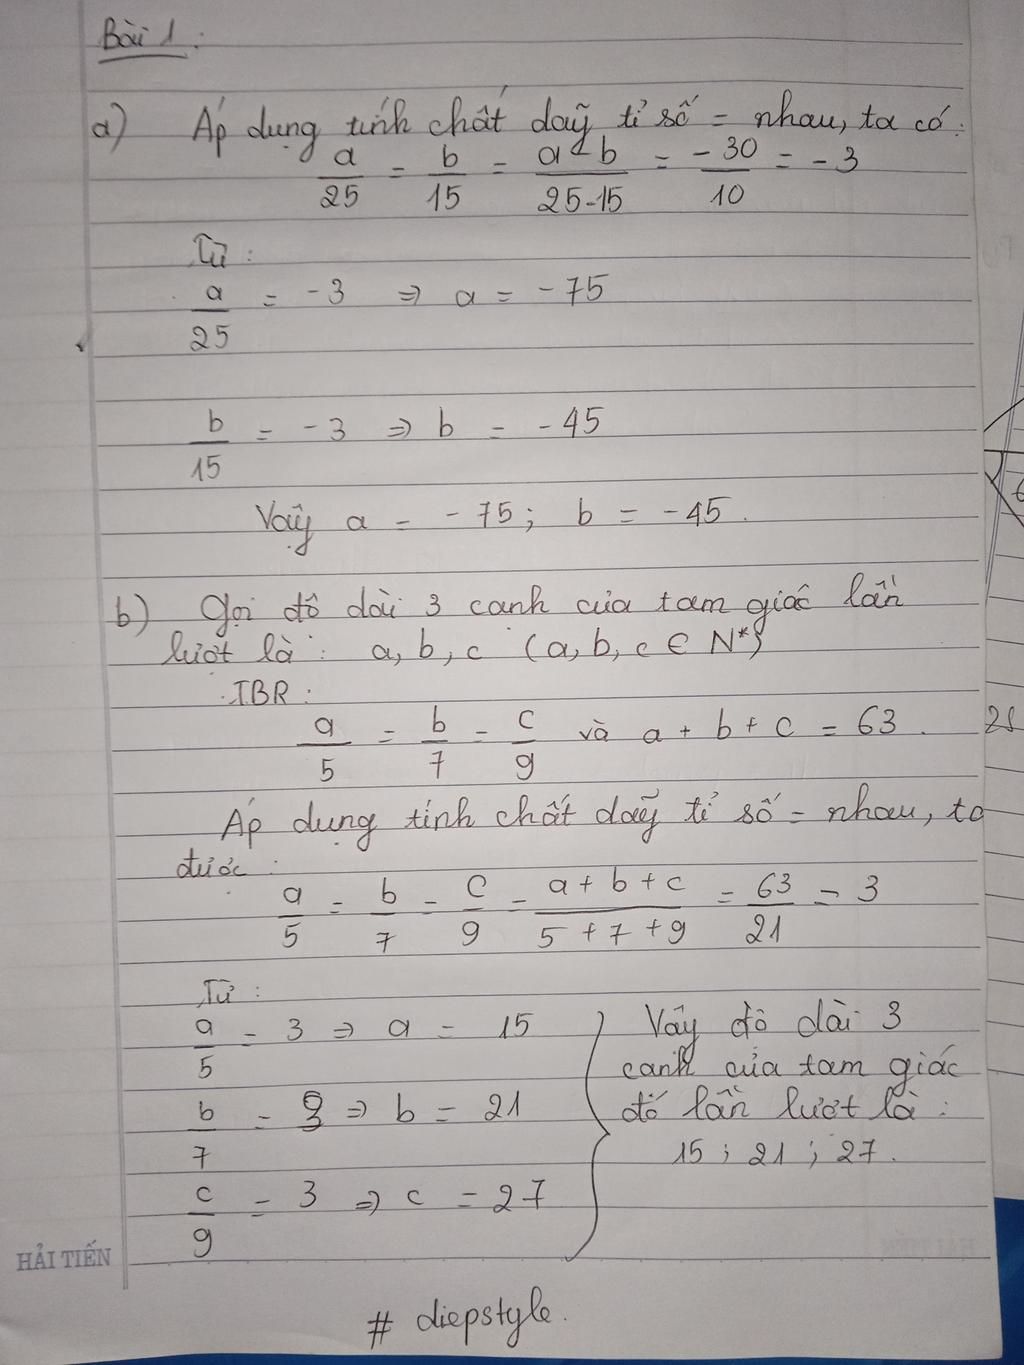 Bài 1:
a) Áp dụng tính chất dãy tỉ số = nhau, ta có:
a/25 = b/15 = a-b/25-15 = -30/10 = -3
Từ:
a/25 = -3 => a = -75
b/15 = -3 => b = -45
Vậy a = -75; b = -45.
b) Gọi độ dài 3 cạnh của tam giác lần
lượt là: a, b, c (a, b, c ∈ N*)
TBR:
a/5 = b/7 = c/9 và a + b + c = 63.
Áp dụng tính chất dãy tỉ số = nhau, ta
được:
a/5 = b/7 = c/9 = a+b+c/5+7+9 = 63/21 = 3
Từ:
a/5 = 3 => a = 15
b/7 = 3 => b = 21
c/9 = 3 => c = 27
Vậy độ dài 3
cạnh của tam giác
đó lần lượt là:
15; 21; 27.
HẢI TIẾN
# diepstyle.